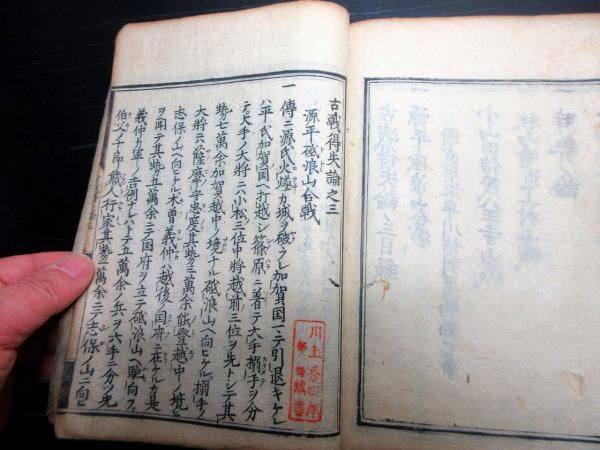 古戦得失論之三
源平砥浪山合戦
一傳ニ源氏火燧カ城ヲ破ラレ加賀国ニテ引退キケレ
ハ平氏加賀国ヘ打越シ篠原ニ着テ大手搦手ヲ分
テ大手ノ大将ニハ小松三位中将越前三位ヲ先トシテ其
勢七萬余加賀越中ノ境ナル砥浪山ヘ向ヒケル搦手ノ
大将ニハ薩摩守忠度其勢三萬余能登越中ノ境ヒ
志保山ヘ向ヒケル木曽義仲ハ越後ノ国府ニ在ケルカ是
ヲ聞テ其勢五萬余ニテ国府ヲ立テ砥浪山ヘ馳向フ
義仲カ軍ノ吉例ナレハトテ五萬余ノ兵ヲ六手ニ分ツ先
伯父十郎蔵人行家其勢一萬余ニテ志保山ニ向ヒ
川上
蔵書